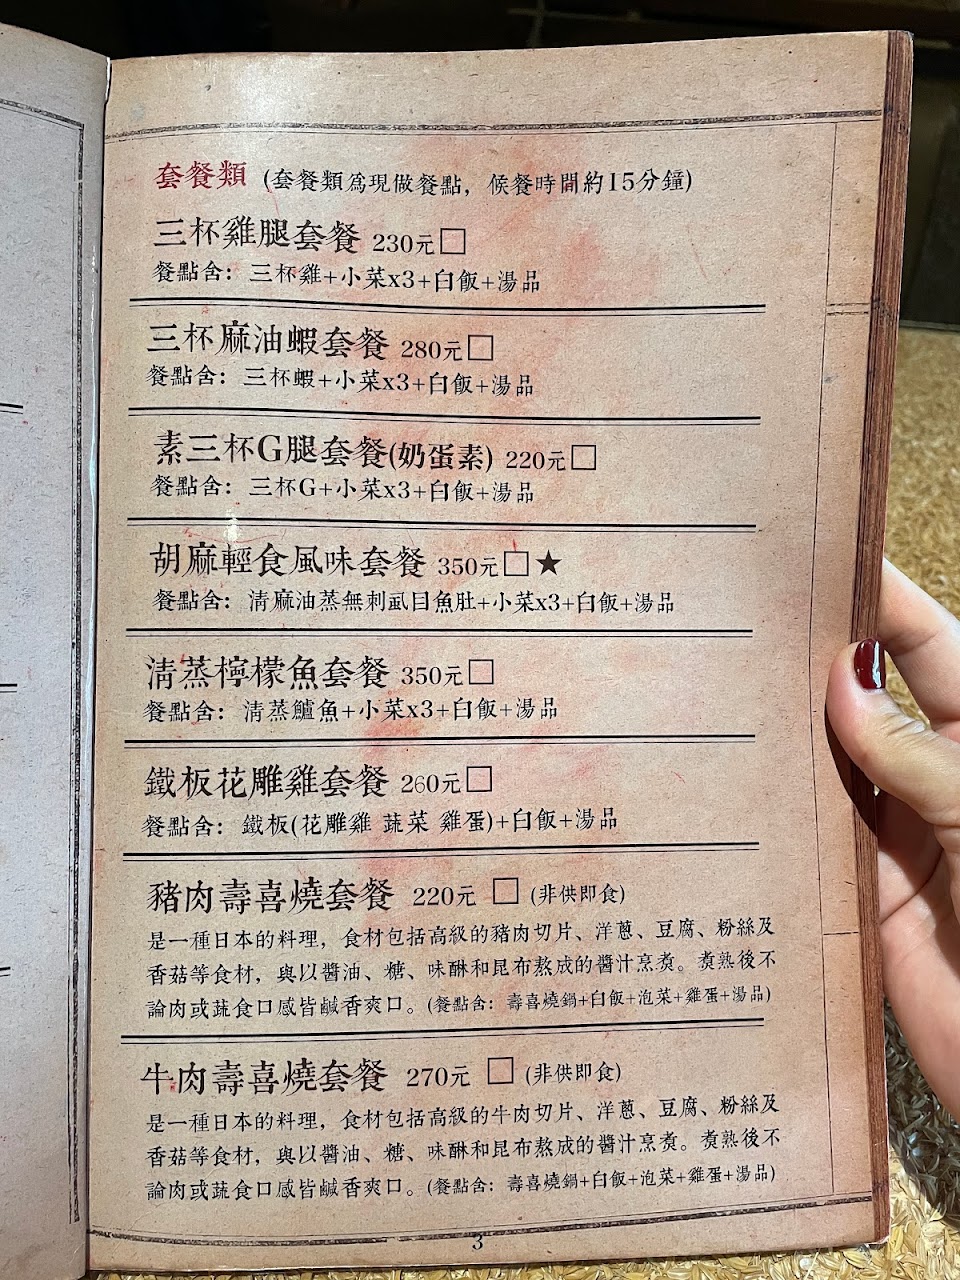 套餐類 (套餐類為現做餐點，候餐時間約15分鐘)
三杯雞腿套餐 230元□
餐點含：三杯雞+小菜x3+白飯+湯品
三杯麻油蝦套餐 280元□
餐點含：三杯蝦+小菜x3+白飯+湯品
素三杯G腿套餐(奶蛋素) 220元□
餐點含：三杯G+小菜x3+白飯+湯品
胡麻輕食風味套餐 350元□★
餐點含：清麻油蒸無刺虱目魚肚+小菜x3+白飯+湯品
清蒸檸檬魚套餐 350元□
餐點含：清蒸鱸魚+小菜x3+白飯+湯品
鐵板花雕雞套餐 260元□
餐點含：鐵板(花雕雞 蔬菜 雞蛋)+白飯+湯品
豬肉壽喜燒套餐 220元 □ (非供即食)
是一種日本的料理，食材包括高級的豬肉切片、洋蔥、豆腐、粉絲及
香菇等食材，與以醬油、糖、味醂和昆布熬成的醬汁烹煮。煮熟後不
論肉或蔬食口感皆鹹香爽口。(餐點含：壽喜燒鍋+白飯+泡菜+雞蛋+湯品)
牛肉壽喜燒套餐 270元 □ (非供即食)
是一種日本的料理，食材包括高級的牛肉切片、洋蔥、豆腐、粉絲及
香菇等食材，與以醬油、糖、味醂和昆布熬成的醬汁烹煮。煮熟後不
論肉或蔬食口感皆鹹香爽口。(餐點含：壽喜燒鍋+白飯+泡菜+雞蛋+湯品)
3